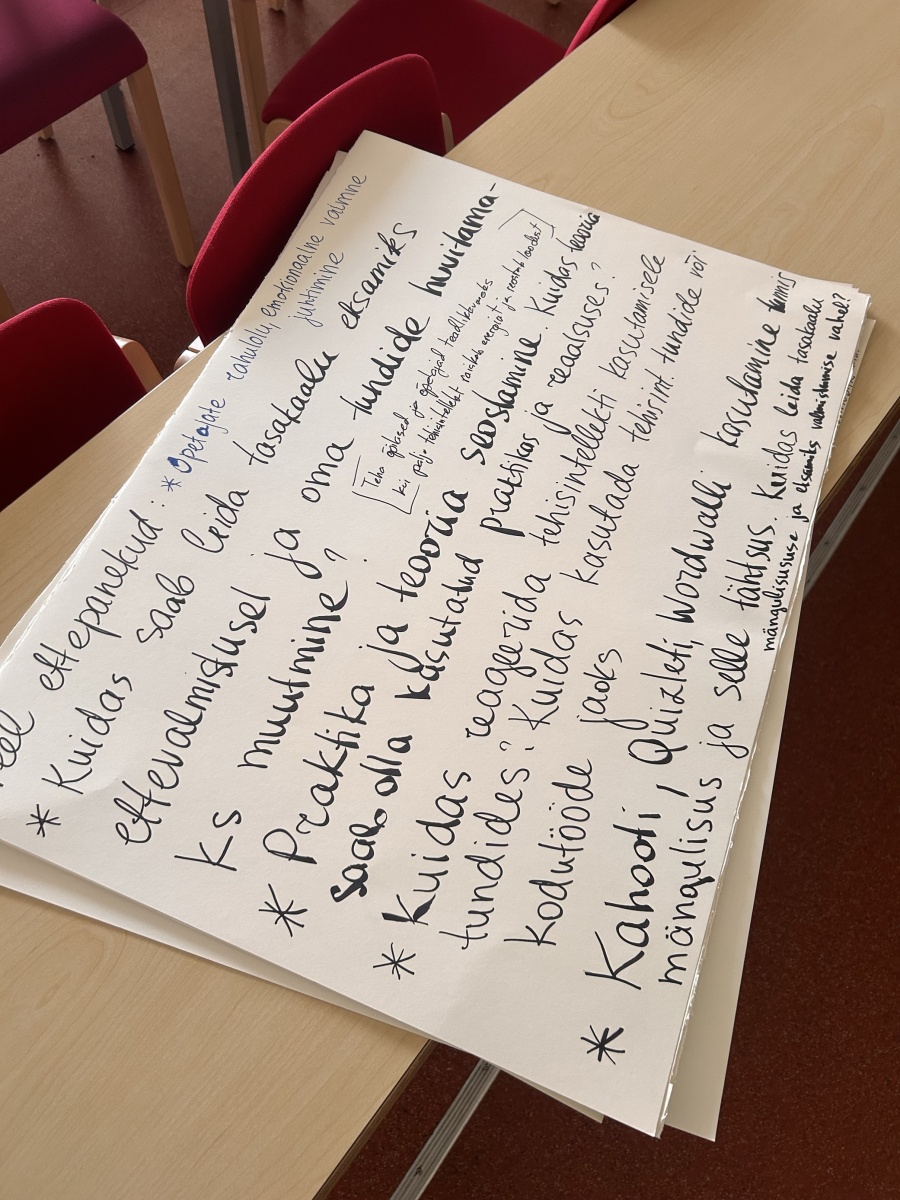 Veel ettepanekud: * Õpetajate rahulolu, emotsionaalne
juhtimine
* Kuidas saab leida tasakaalu eksamiks
ettevalmistusel ja oma tundide huvitama-
ks muutmine?
[Teha õpilased ja õpetajad teadlikkumaks
kui palju tehisintelekt raiskab energiat ja reostab loodust]
* Praktika ja teooria seostamine. Kuidas teooria
saab olla kasutatud praktikas ja reaalsuses?
* Kuidas reageerida tehisintellekti kasutamisele
tundides? Kuidas kasutada tehisint. tundide või
kodutööde jaoks
* Kahooti, Quizleti, Wordwalli kasutamine tunnis
mängulisus ja selle tähtsus. Kuidas leida tasakaalu
mängulisususe ja eksamiks valmistamise vahel?